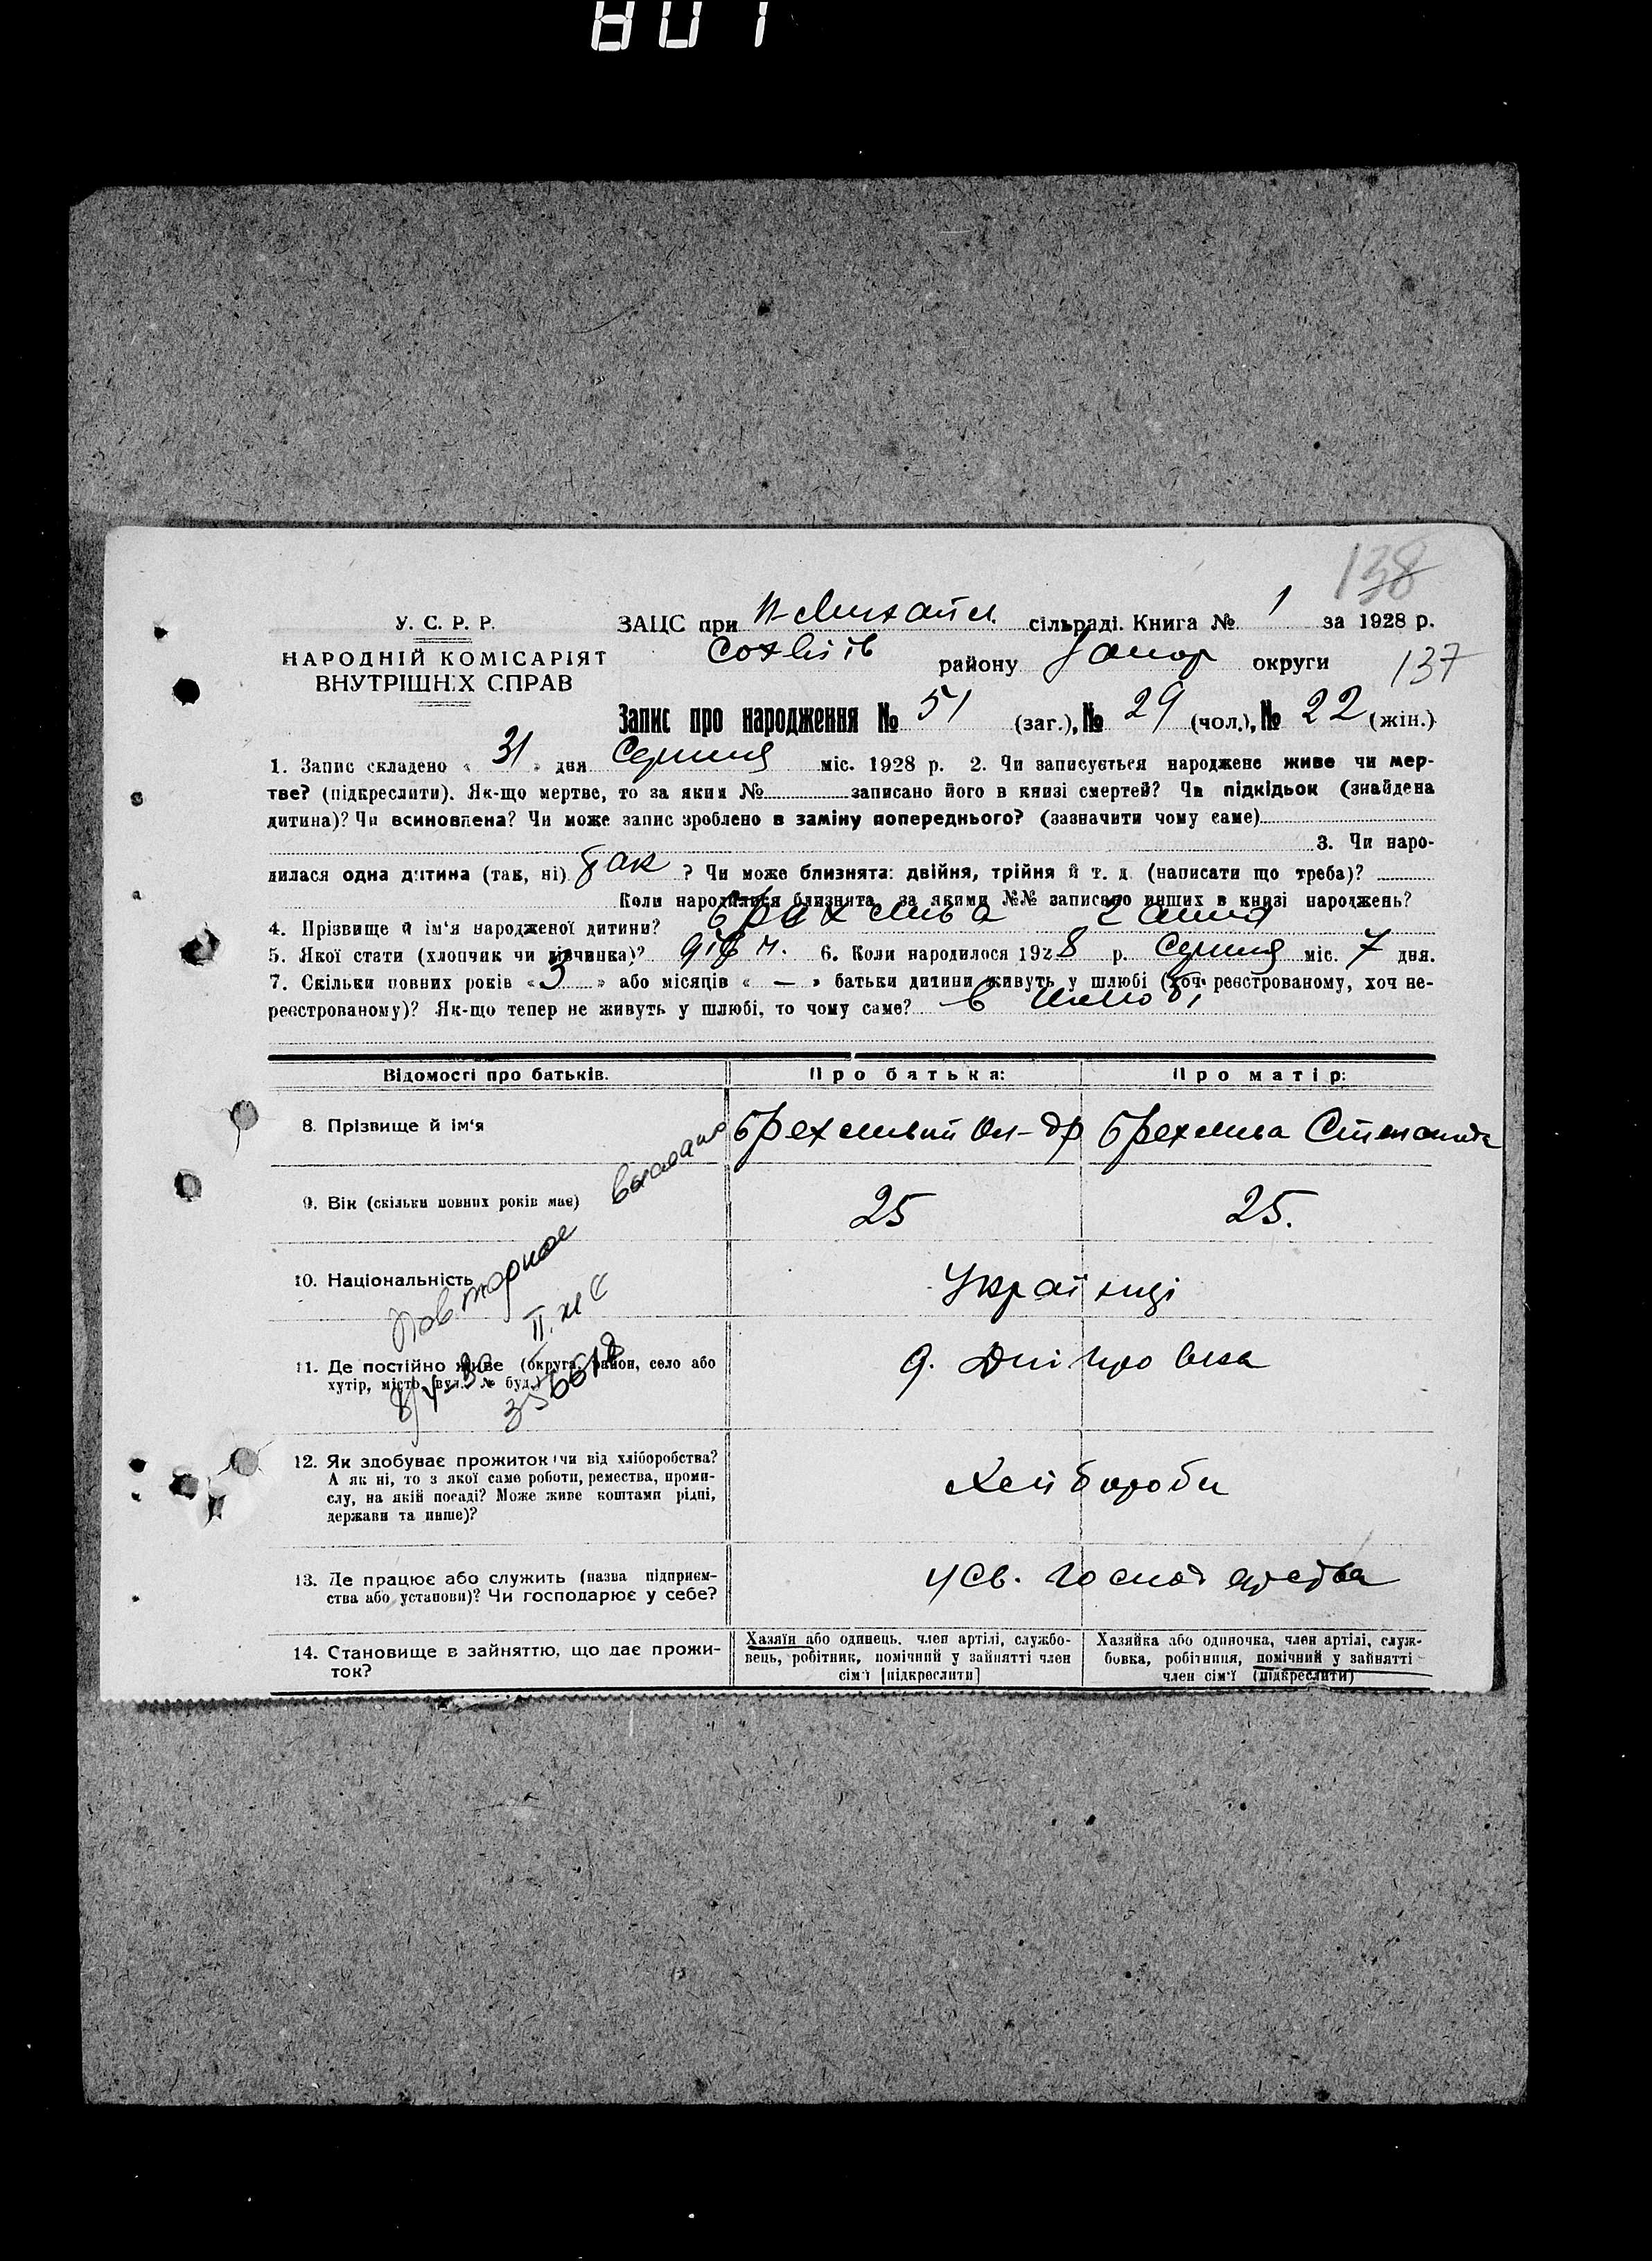 801
138
У. С. Р. Р.
НАРОДНІЙ КОМІСАРІЯТ
ВНУТРІШНІХ СПРАВ
ЗАЦС при Н-Михайл. сільраді. Книга № 1 за 1928 р.
району Запор округи 137
Запис про народження № 51 (заг.), № 29 (чол.), № 22 (жін.)
1. Запис складено « 31 » дня Серпня міс. 1928 р. 2. Чи записується народжене живе чи мер-
тве? (підкреслити). Як-що мертве, то за яким № записано його в книзі смертей? Чи підкідьок (знайдена
дитина)? Чи всиновлена? Чи може запис зроблено в заміну попереднього? (зазначити чому саме)
3. Чи наро-
дилася одна дитина (так, ні) Так ? Чи може близнята: двійня, трійня й т. д. (написати що треба)?
Коли народилися близнята, за якими №№ записано инших в книзі народжень?
4. Прізвище й ім'я народженої дитини?
5. Якої стати (хлопчик чи дівчинка)? дівч. 6. Коли народилося 1928 р. Серпня міс. 7 дня.
7. Скільки повних років « 3 » або місяців « — » батьки дитини живуть у шлюбі (хоч реєстрованому, хоч не-
реєстрованому)? Як-що тепер не живуть у шлюбі, то чому саме? В шлюбі
Відомості про батьків. Про батька: Про матір:
8. Прізвище й ім'я Брехливий Ол-др Брехлива Степанида
9. Вік (скільки повних років має) 25 25.
10. Національність Українці
Повторное
11. Де постійно живе (округа, район, село або
хутір, місто, вул. № буд.) д. Дніпровка
12. Як здобуває прожиток чи від хліборобства?
А як ні, то з якої саме роботи, ремества, проми-
слу, на якій посаді? Може живе коштами рідні,
держави та инше)? Хлібороби
13. Де працює або служить (назва підприєм-
ства або установи)? Чи господарює у себе? у св. господарства
14. Становище в зайняттю, що дає прожи-
ток?
Хазяїн або одинець, член артілі, службо-
вець, робітник, помічний у зайнятті член
сім'ї [підкреслити]
Хазяйка або одиночка, член артілі, служ-
бовка, робітниця, помічний у зайнятті
член сім'ї (підкреслити)